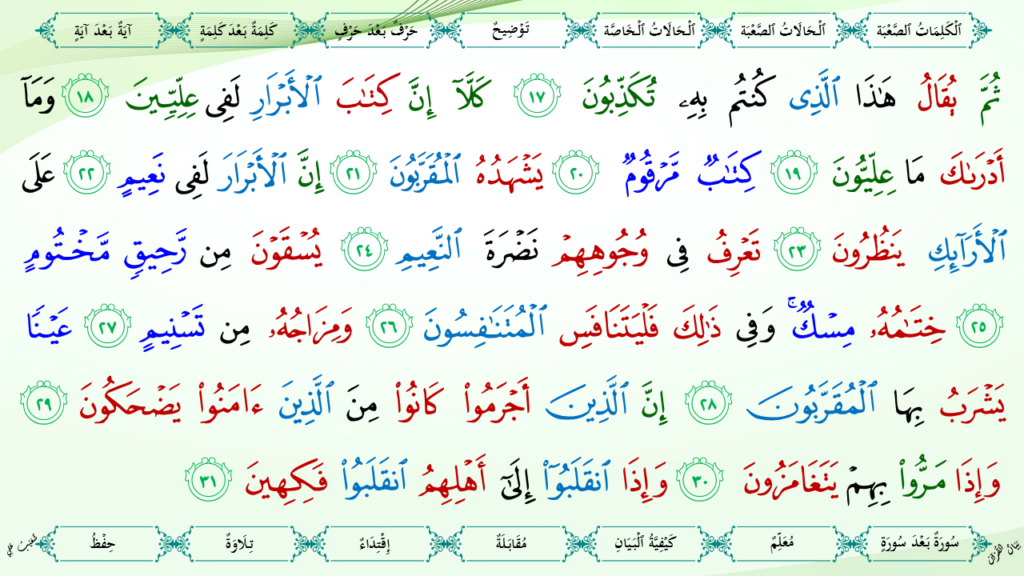 ٱلْكَلِمَاتُ الصَّعْبَة ٱلْحَالَاتُ الصَّعْبَة ٱلْحَالَاتُ الْخَاصَّة تَوْضِيحٌ حَرْفٌ بَعْدَ حَرْفٍ كَلِمَةٌ بَعْدَ كَلِمَةٍ آيَةٌ بَعْدَ آيَةٍ
ثُمَّ يُقَالُ هَـٰذَا ٱلَّذِى كُنتُم بِهِۦ تُكَذِّبُونَ ١٧ كَلَّآ إِنَّ كِتَـٰبَ ٱلْأَبْرَارِ لَفِى عِلِّيِّينَ ١٨ وَمَآ
أَدْرَىٰكَ مَا عِلِّيُّونَ ١٩ كِتَـٰبٌ مَّرْقُومٌ ٢٠ يَشْهَدُهُ ٱلْمُقَرَّبُونَ ٢١ إِنَّ ٱلْأَبْرَارَ لَفِى نَعِيمٍ ٢٢ عَلَى
ٱلْأَرَآئِكِ يَنظُرُونَ ٢٣ تَعْرِفُ فِى وُجُوهِهِمْ نَضْرَةَ ٱلنَّعِيمِ ٢٤ يُسْقَوْنَ مِن رَّحِيقٍ مَّخْتُومٍ
٢٥ خِتَـٰمُهُۥ مِسْكٌ ۚ وَفِى ذَٰلِكَ فَلْيَتَنَافَسِ ٱلْمُتَنَـٰفِسُونَ ٢٦ وَمِزَاجُهُۥ مِن تَسْنِيمٍ ٢٧ عَيْنًا
يَشْرَبُ بِهَا ٱلْمُقَرَّبُونَ ٢٨ إِنَّ ٱلَّذِينَ أَجْرَمُوا۟ كَانُوا۟ مِنَ ٱلَّذِينَ ءَامَنُوا۟ يَضْحَكُونَ ٢٩
وَإِذَا مَرُّوا۟ بِهِمْ يَتَغَامَزُونَ ٣٠ وَإِذَا ٱنقَلَبُوٓا۟ إِلَىٰٓ أَهْلِهِمُ ٱنقَلَبُوا۟ فَكِهِينَ ٣١
سُورَةٌ بَعْدَ سُورَةٍ مُعَلِّمٌ كَيْفِيَّةُ الْبَيَانِ مُقَابَلَةٌ إِقْتِدَاءٌ تِلَاوَةٌ حِفْظٌ